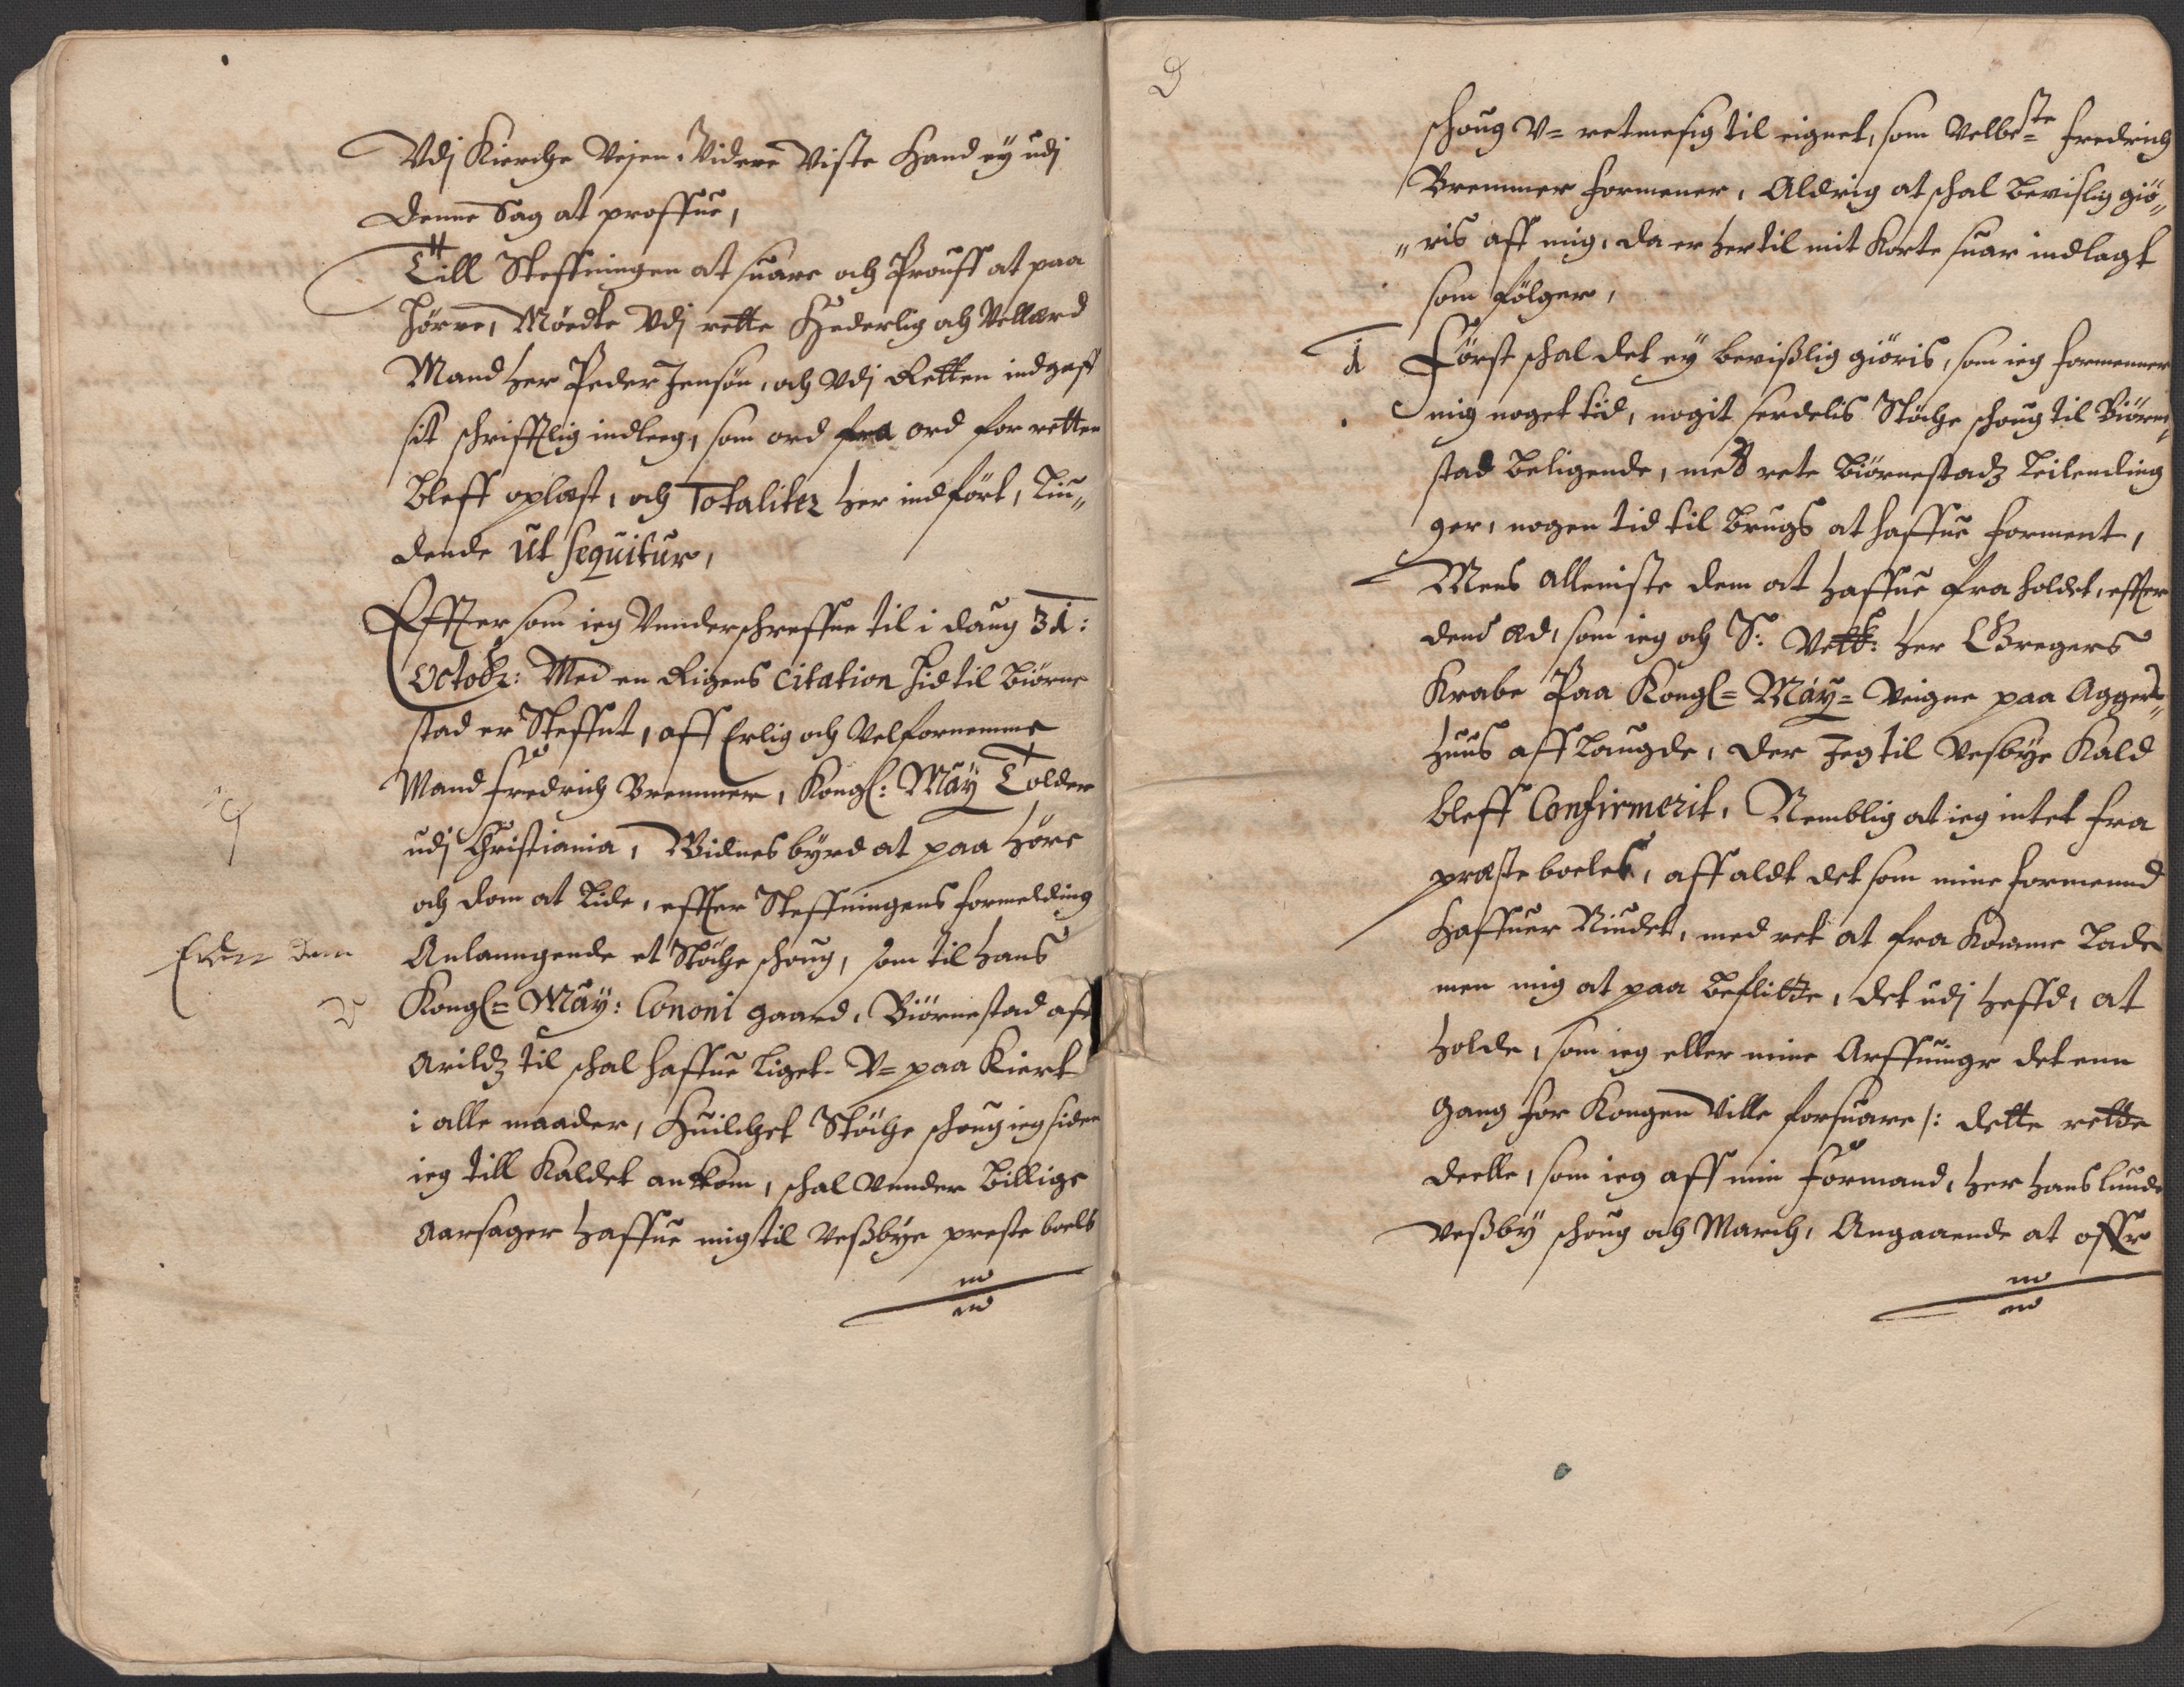 Vdj Kierche Veÿen. Videre Viste Hand eÿ udj
denne Sag at proffue,
Till Steffningen at suare och Prouff at paa
hørre, Møedte Vdj rette Hederlig och Vellærd
Mand her Peder Jensøn, och Vdj Retten indgaff
sit schrifftlig indleeg, som ord fra ord for retten
bleff oplæst, och Totaliter her indført, liu„
dende ut sequitur,
Effter som ieg Vnderschreffne til i daug 31:
Octobr: Med en Rigens Citation hid til Biørne
stad er Steffnt, aff Erlig och Velfornemme
Mand Fredrich Bremmer, Kongl: Maÿ Tolder
udj Christiania, Widnesbÿrd at paa høre
och dom at lide, effter Steffningens formelding
Anlanngende et Støche schoug, som til hans
Kongl= Maÿ: Cononi gaard, Biørnestad aff
Arildz til schal haffue liget V= paa Kiert
i alle maader, Huilchet Støche schoug ieg siden
ieg till Kaldet ankom, schal Vnder billige
Aarsager haffue mig til Veßbÿe preste boels
schoug V= retmesig til eignet, som Velbe=ste Fredrich
Bremmer formener, Aldrig at schal bevislig giø„
„ris aff mig, da er her til mit Korte suar indlagt
som følger,
1 Først schal det eÿ bevißlig giøris, som ieg formenner
mig noget tid, nogit serdelis Støche schoug til Biørne„
stad beligende, med rete Biørnestadz leilending
ger, nogen tid til brugs at haffue forment,
Mens alleniste dem at haffue fra holdet, effter
dend æd, som ieg och S: her Gregers
Krabe Paa Kongl= Maÿ= Veigne paa Aggers„
huus aff laugde, der Jeg til Vesbÿe Kald
bleff Confirmerit, Nemblig at ieg intet fra
præste boelet, aff aldt det som mine formennd
Haffuer Niudet, med ret at fra Komme lade
men mig at paa beflitte, det udj heffd, at
holde, som ieg eller mine Arffuinger det enn
gang for Kongen Ville forsuare /: dette rette
deelle, som ieg aff min formand, her Hans Lunde
Veßbÿ schoug och March, Angaaende at offr